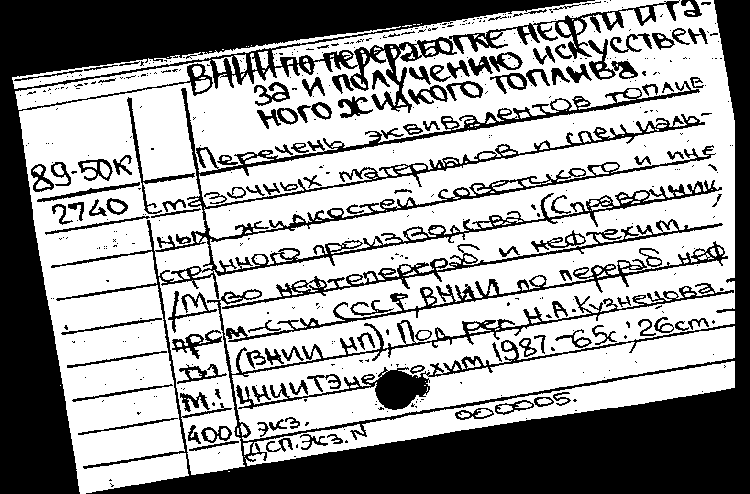 ВНИИ по переработке нефти и га-
за и получению искусствен-
ного жидкого топлива.
89-50К
2740
Перечень эквивалентов топлив
смазочных материалов и специаль-
ных жидкостей советского и ине
странного производства: (Справочник)
/М-во нефтеперераб. и нефтехим.
пром-сти СССР, ВНИИ по перераб. неф
ти (ВНИИ НП); Под ред. Н.А.Кузнецова.-
М.: ЦНИИТЭнефтехим, 1987.-65с.; 26см.-
4000 экз.
ДСП. Экз. N 000005.